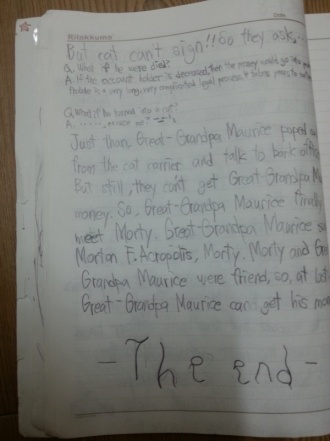 Date
But cat can't sign!! So they ask
Q. What if he were died?
A. If the account holder is deceased, then the money would go into
Probate is a very long, very complicated legal process. It takes years,
Q. What if he turned into a cat?
A. excuse me?
Just than, Great-Grandpa Maurice poped
from the cat carrier and talk to bank
But still, they can't get Great-Grandpa
money. So, Great-Grandpa Maurice finally
meet Morty. Great-Grandpa Maurice
Mortan F. Acropolis, Morty. Morty and
Grandpa Maurice were friend, so, at last
Great-Grandpa Maurice can get his
- The end -